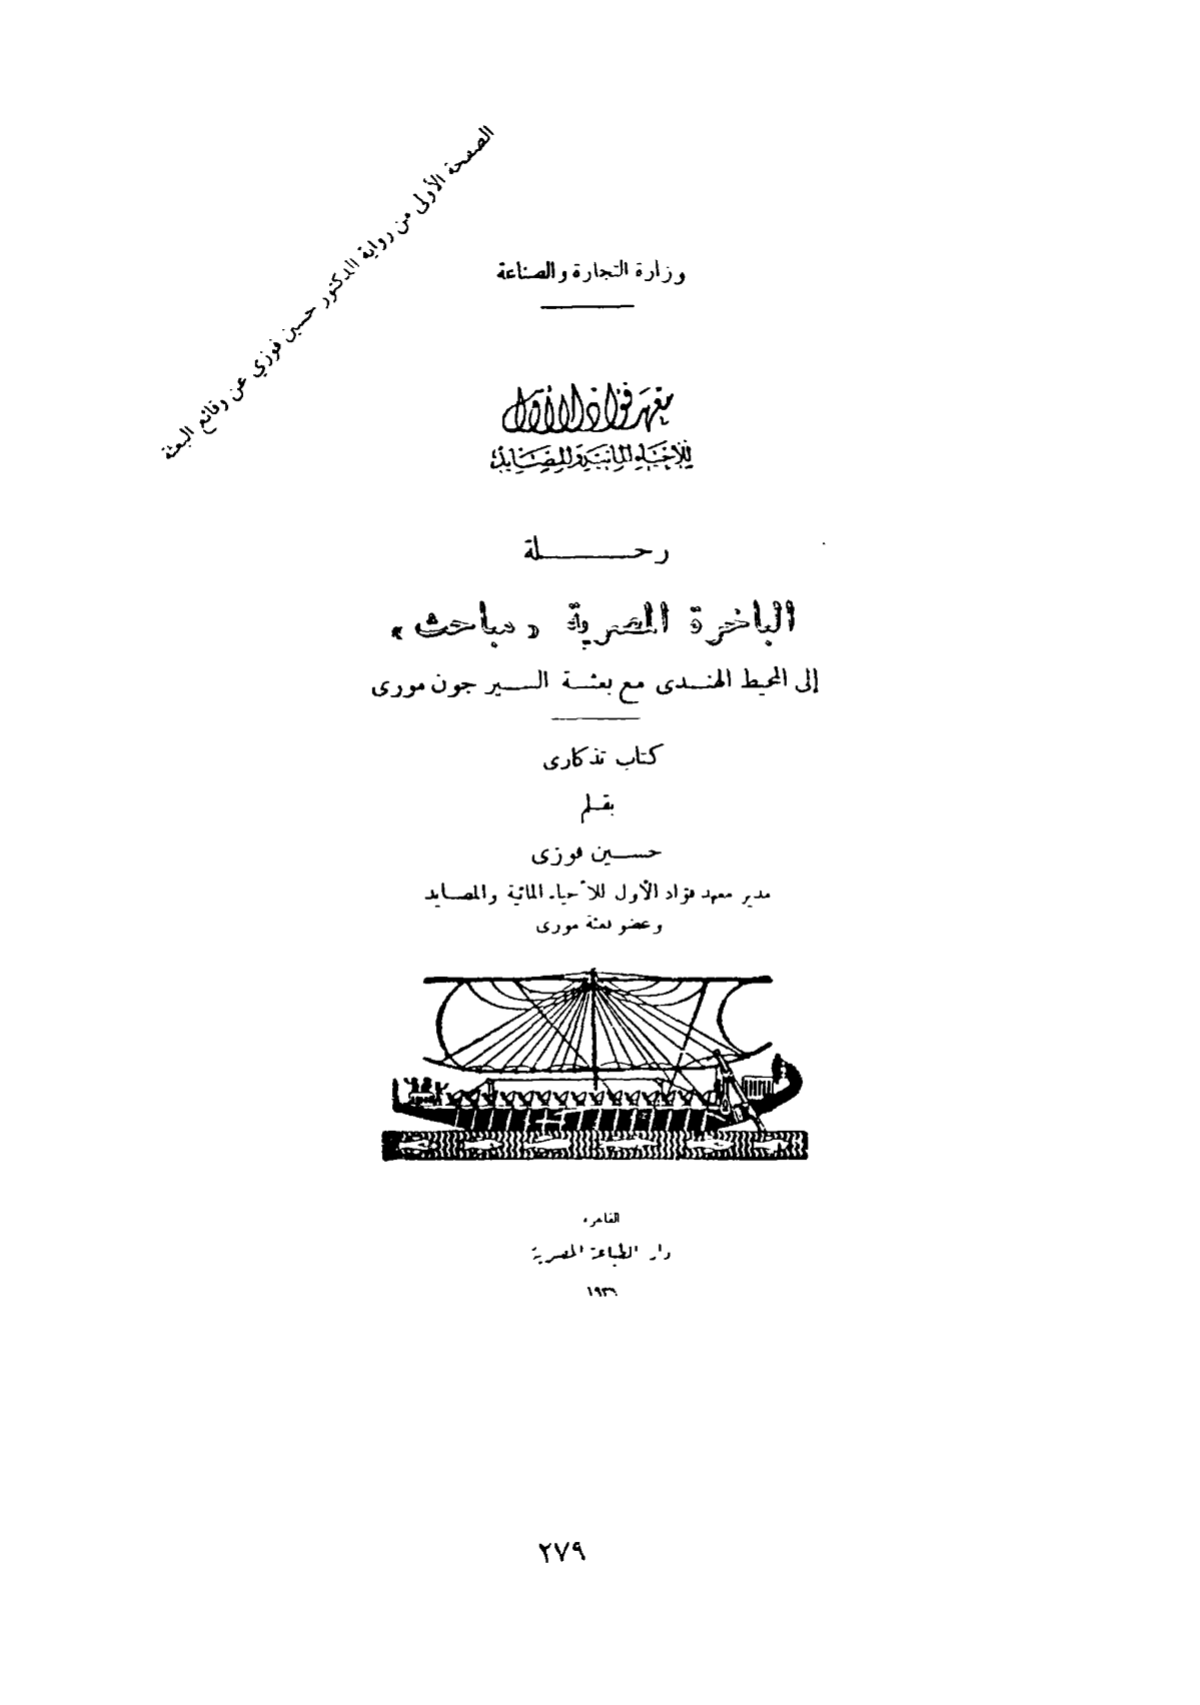 الصفحة الأولى من رواية الدكتور حسين فوزي عن وقائع البعثة
وزارة التجارة والصناعة
معهد فؤاد الأول
للأحياء المائية والمصايد
رحلة
الباخرة المصرية «مباحث»
إلى المحيط الهندى مع بعثة السير جون مورى
كتاب تذكارى
بقلم
حسين فوزى
مدير معهد فؤاد الأول للأحياء المائية والمصايد
وعضو بعثة مورى
القاهرة
دار الطباعة المصرية
٢٧٩